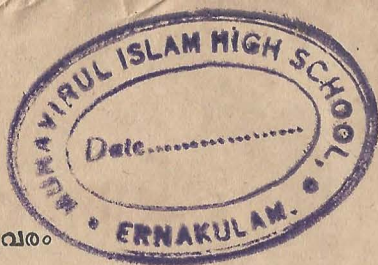 MUNAVIRUL ISLAM HIGH SCHOOL,
Date....................
• ERNAKULAM. •
വരം